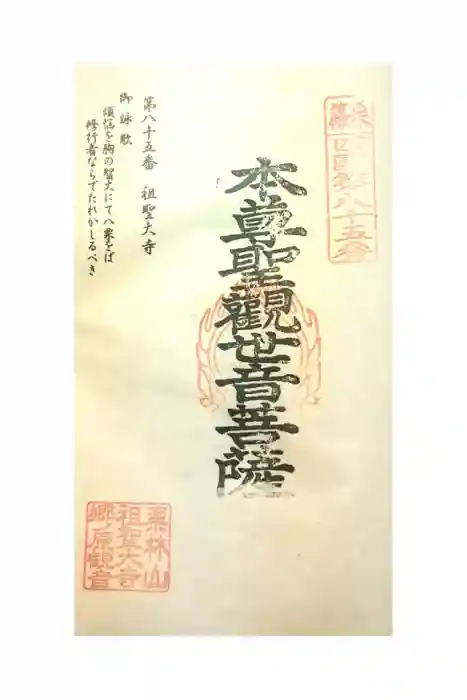 四国第八十五番
本尊聖觀世音菩薩
第八十五番　祖聖大寺
御詠歌
煩悩を胸の智火にて八栗をば
修行者ならでたれかしるべき
栗林山
祖聖大寺
郷ノ原觀音